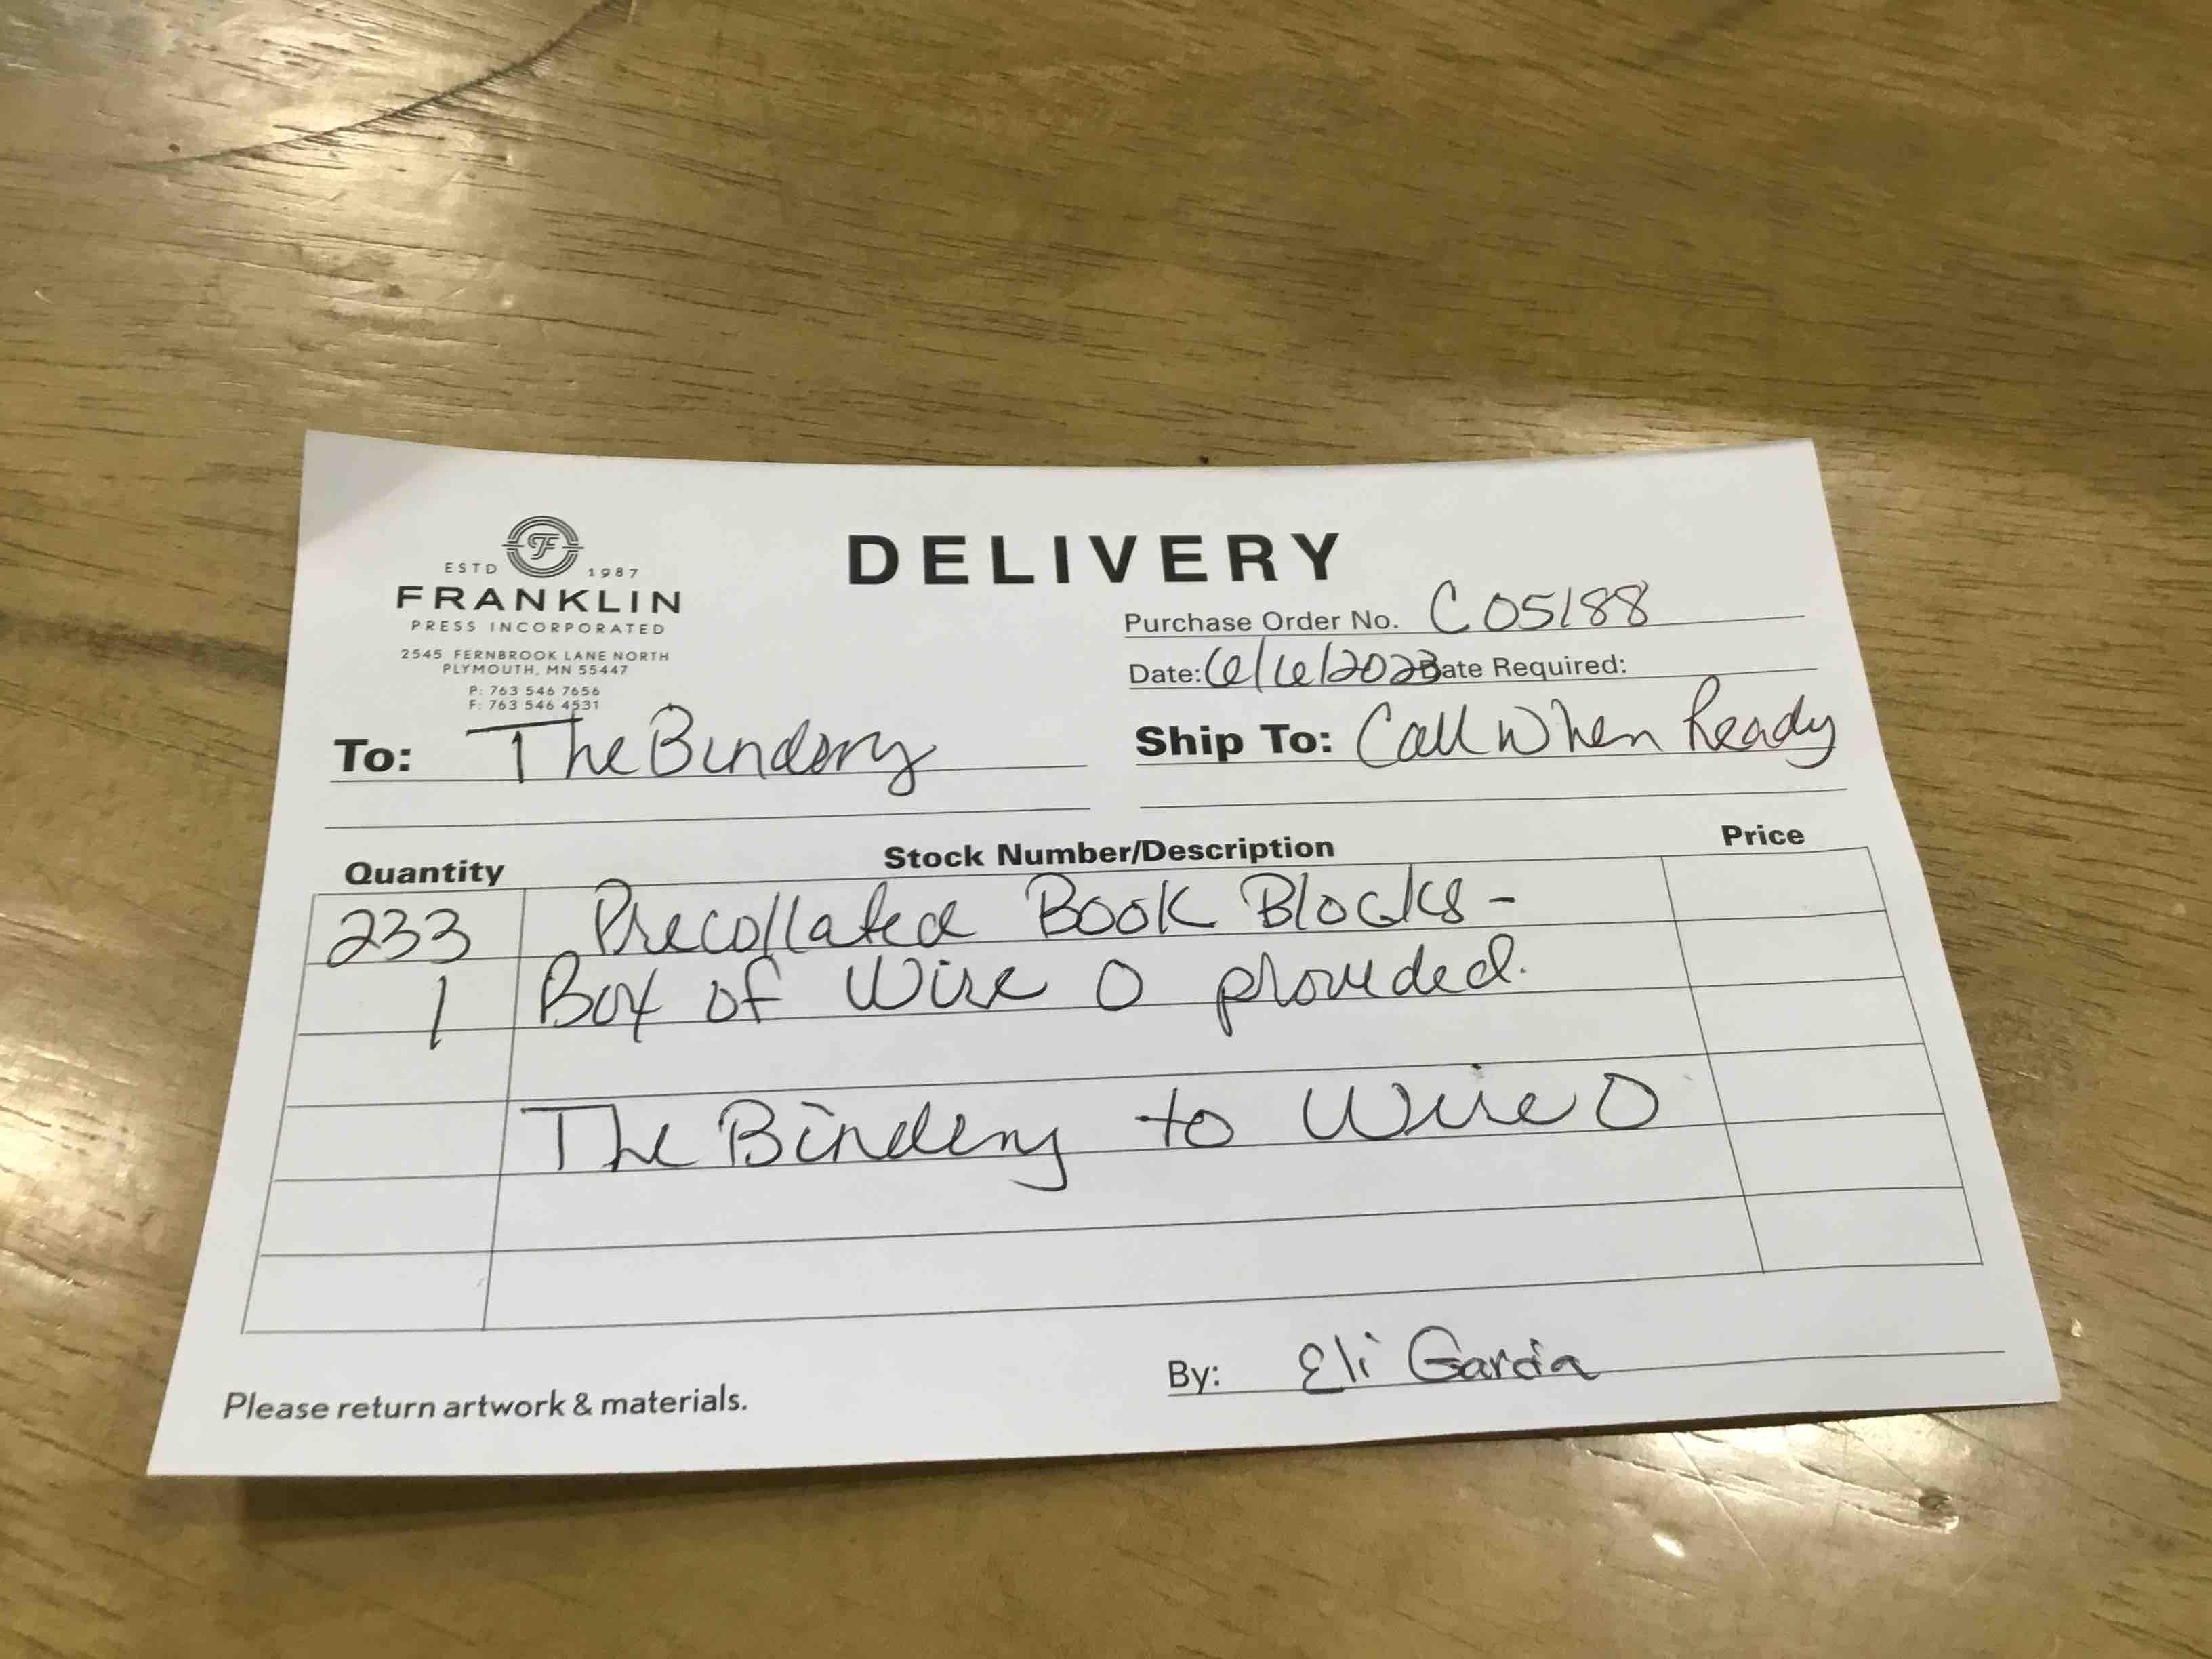 ESTD F 1987
FRANKLIN
PRESS INCORPORATED
2545 FERNBROOK LANE NORTH
PLYMOUTH, MN 55447
P: 763 546 7656
F: 763 546 4531
DELIVERY
Purchase Order No. C05188
Date: 6/6/2023 Date Required:
To: The Bindery
Ship To: Call When Ready
Quantity Stock Number/Description Price
233 Precollated Book Blocks -
1 Box of Wire O provided.
The Bindery to Wire O
Please return artwork & materials.
By: Eli Garcia